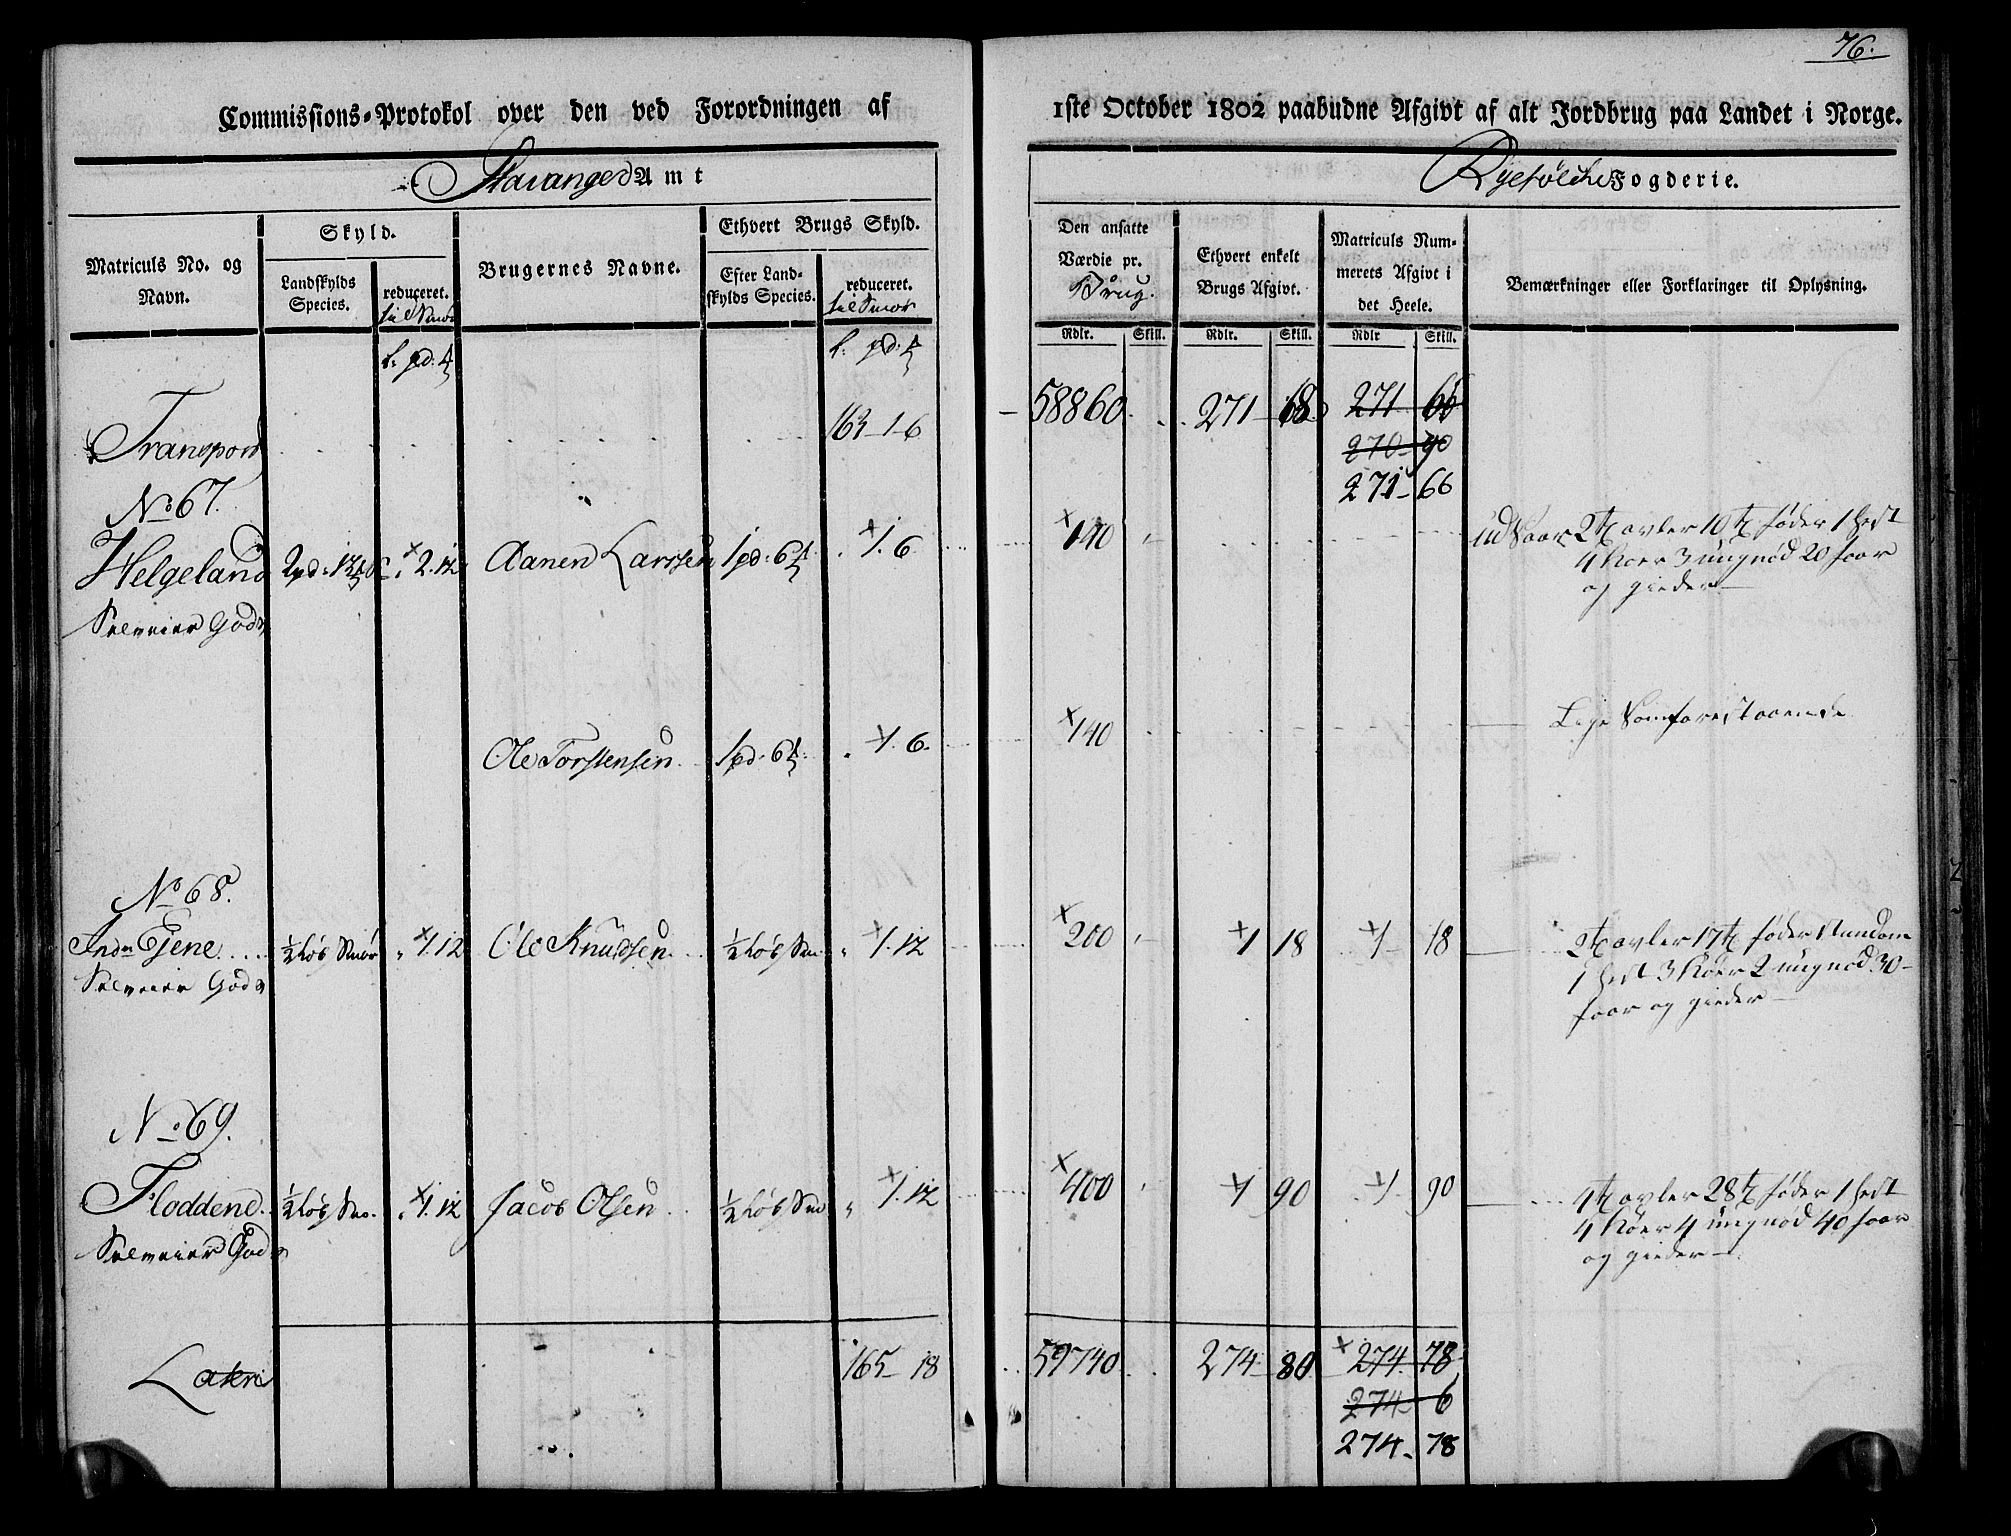 76.
Commissions-Protokol over den ved Forordningen af 1ste October 1802 paabudne Afgivt af alt Jordbrug paa Landet i Norge.
Stavanger Amt
Ryefølche Fogderie.
Matriculs No. og Navn.
Skyld.
Landskylds Species.
reduceret. til Smør
Brugernes Navne.
Ethvert Brugs Skyld.
Efter Landskylds Species.
reduceret. til Smør
Den ansatte Værdie pr. Brug.
Ethvert enkelt Brugs Afgivt.
Matriculs Nummerets Afgivt i det Heele.
Bemærkninger eller Forklaringer til Oplysning.
Rdlr. Skill. Rdlr. Skill. Rdlr Skill.
l: pd: l: pd:
Transport 163-1-6 58860 271 271 66
270 90
271 66
No 67.
Helgeland 2pd. 2.12 Aanen Larssen 1pd. 6 1.6 140 2 avler 10 føder 1 hest
4 køer 3 ungnød 20 faar
og gieder
Selveier Gods
Ole Torstensen 1pd. 6 1.6 140 Lige som forestaaende
No 68.
Indre Eiene ½ Løb Smør 1.12 Ole Knudsen ½ Løb Sm 1.12 200 1 18 1 18 2 avler 17 føder
1 hest 3 køer 2 ungnød 30
faar og gieder
Selveier Gods
No 69.
Floddene ½ Løb Smø. 1.12 Jacob Olsen ½ Løb Smø 1.12 400 1 90 1 90 4 avler 28 føder 1 hest
4 køer 4 ungnød 40 faar
og gieder
Selveier Gods
Lateris 165 18 59740 274 80 274 78
274 6
274 78